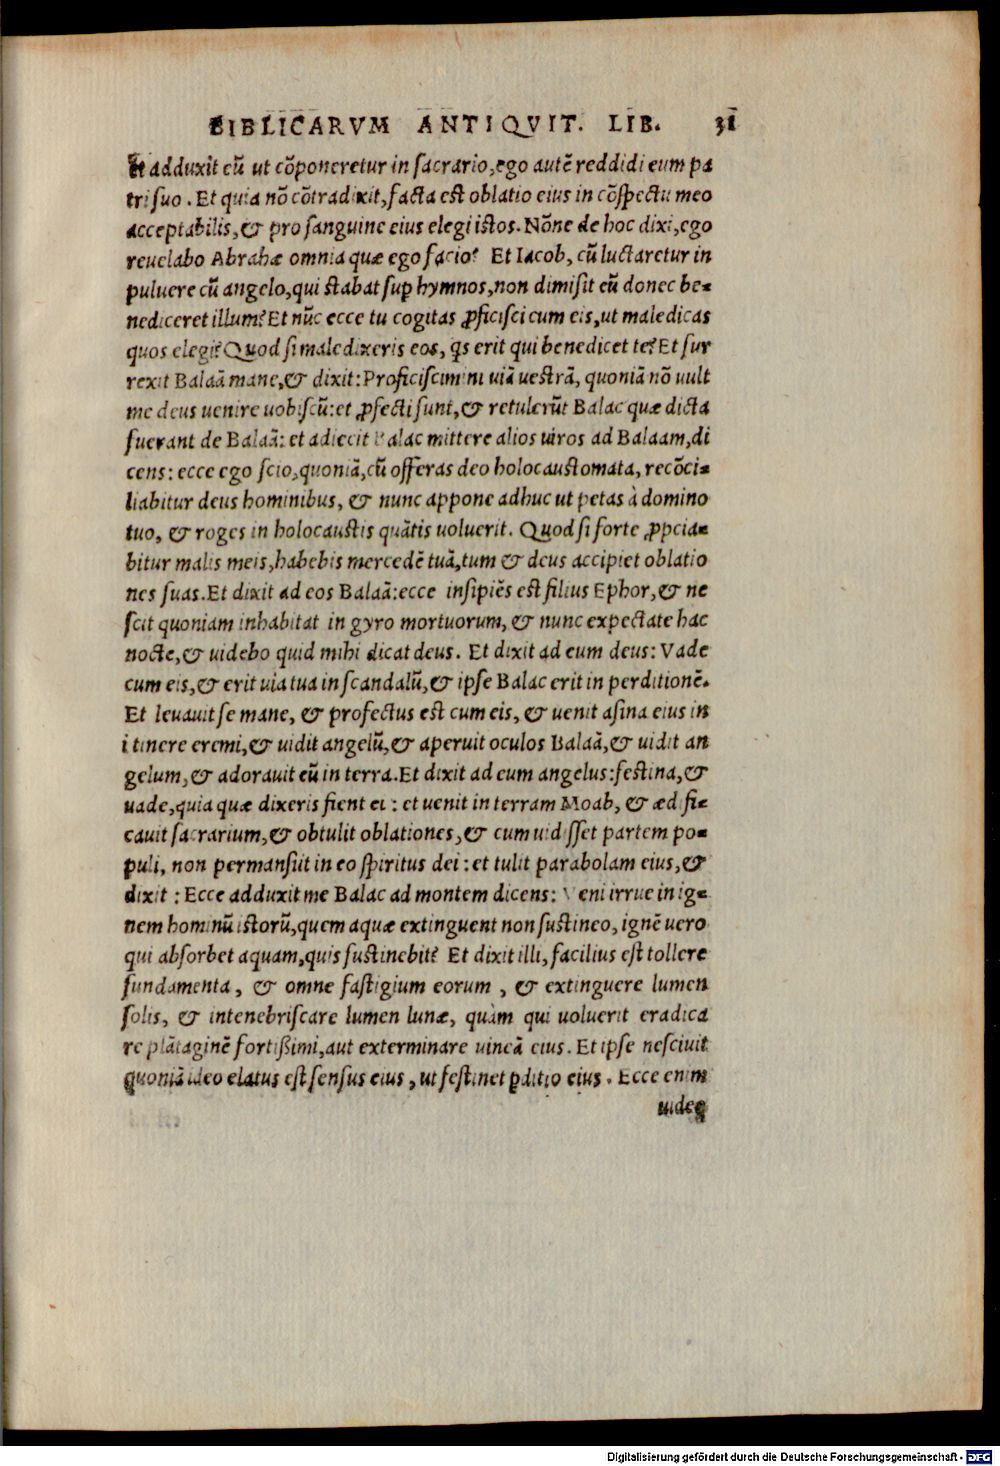 BIBLICARVM ANTIQVIT. LIB. 31
Et adduxit eũ ut cõponeretur in sacrario, ego autẽ reddidi eum pa
tri suo. Et quia nõ cõtradixit, facta est oblatio eius in cõspectu meo
acceptabilis, & pro sanguine eius elegi istos. Nõne de hoc dixi, ego
reuelabo Abrahæ omnia quæ ego facio? Et Iacob, cũ luctaretur in
puluere cũ angelo, qui stabat sup hymnos, non dimisit eũ donec be-
nediceret illum? Et nũc ecce tu cogitas ꝓficisci cum eis, ut maledicas
quos elegi? Quod si maledixeris eos, q̃s erit qui benedicet te? Et sur
rexit Balaã mane, & dixit: Proficiscimini uiã uestrã, quoniã nõ uult
me deus uenire uobiscũ: et ꝓfecti sunt, & retulerũt Balac quæ dicta
fuerant de Balaã: et adiecit Balac mittere alios uiros ad Balaam, di
cens: ecce ego scio, quoniã, cũ offeras deo holocaustomata, recõci-
liabitur deus hominibus, & nunc appone adhuc ut petas à domino
tuo, & roges in holocaustis quãtis uoluerit. Quod si forte ꝓpcia-
bitur malis meis, habebis mercedẽ tuã, tum & deus accipiet oblatio
nes suas. Et dixit ad eos Balaã: ecce insipiẽs est filius Ephor, & ne
scit quoniam inhabitat in gyro mortuorum, & nunc expectate hac
nocte, & uidebo quid mihi dicat deus. Et dixit ad eum deus: Vade
cum eis, & erit uia tua in scandalũ, & ipse Balac erit in perditionẽ.
Et leuauit se mane, & profectus est cum eis, & uenit asina eius in
itinere eremi, & uidit angelũ, & aperuit oculos Balaã, & uidit an
gelum, & adorauit eũ in terra. Et dixit ad eum angelus: festina, &
uade, quia quæ dixeris fient ei: et uenit in terram Moab, & ædifi-
cauit sacrarium, & obtulit oblationes, & cum uidisset partem po-
puli, non permansit in eo spiritus dei: et tulit parabolam eius, &
dixit: Ecce adduxit me Balac ad montem dicens: Veni irrue in ig-
nem hominũ istorũ, quem aquæ extinguent non sustineo, ignẽ uero
qui absorbet aquam, quis sustinebit? Et dixit illi, facilius est tollere
fundamenta, & omne fastigium eorum, & extinguere lumen
solis, & intenebriscare lumen lunæ, quàm qui uoluerit eradica
re plãtaginẽ fortißimi, aut exterminare uineã eius. Et ipse nesciuit
quoniã ideo elatus est sensus eius, ut festinet ꝑditio eius. Ecce enim
uideo
Digitalisierung gefördert durch die Deutsche Forschungsgemeinschaft - DFG